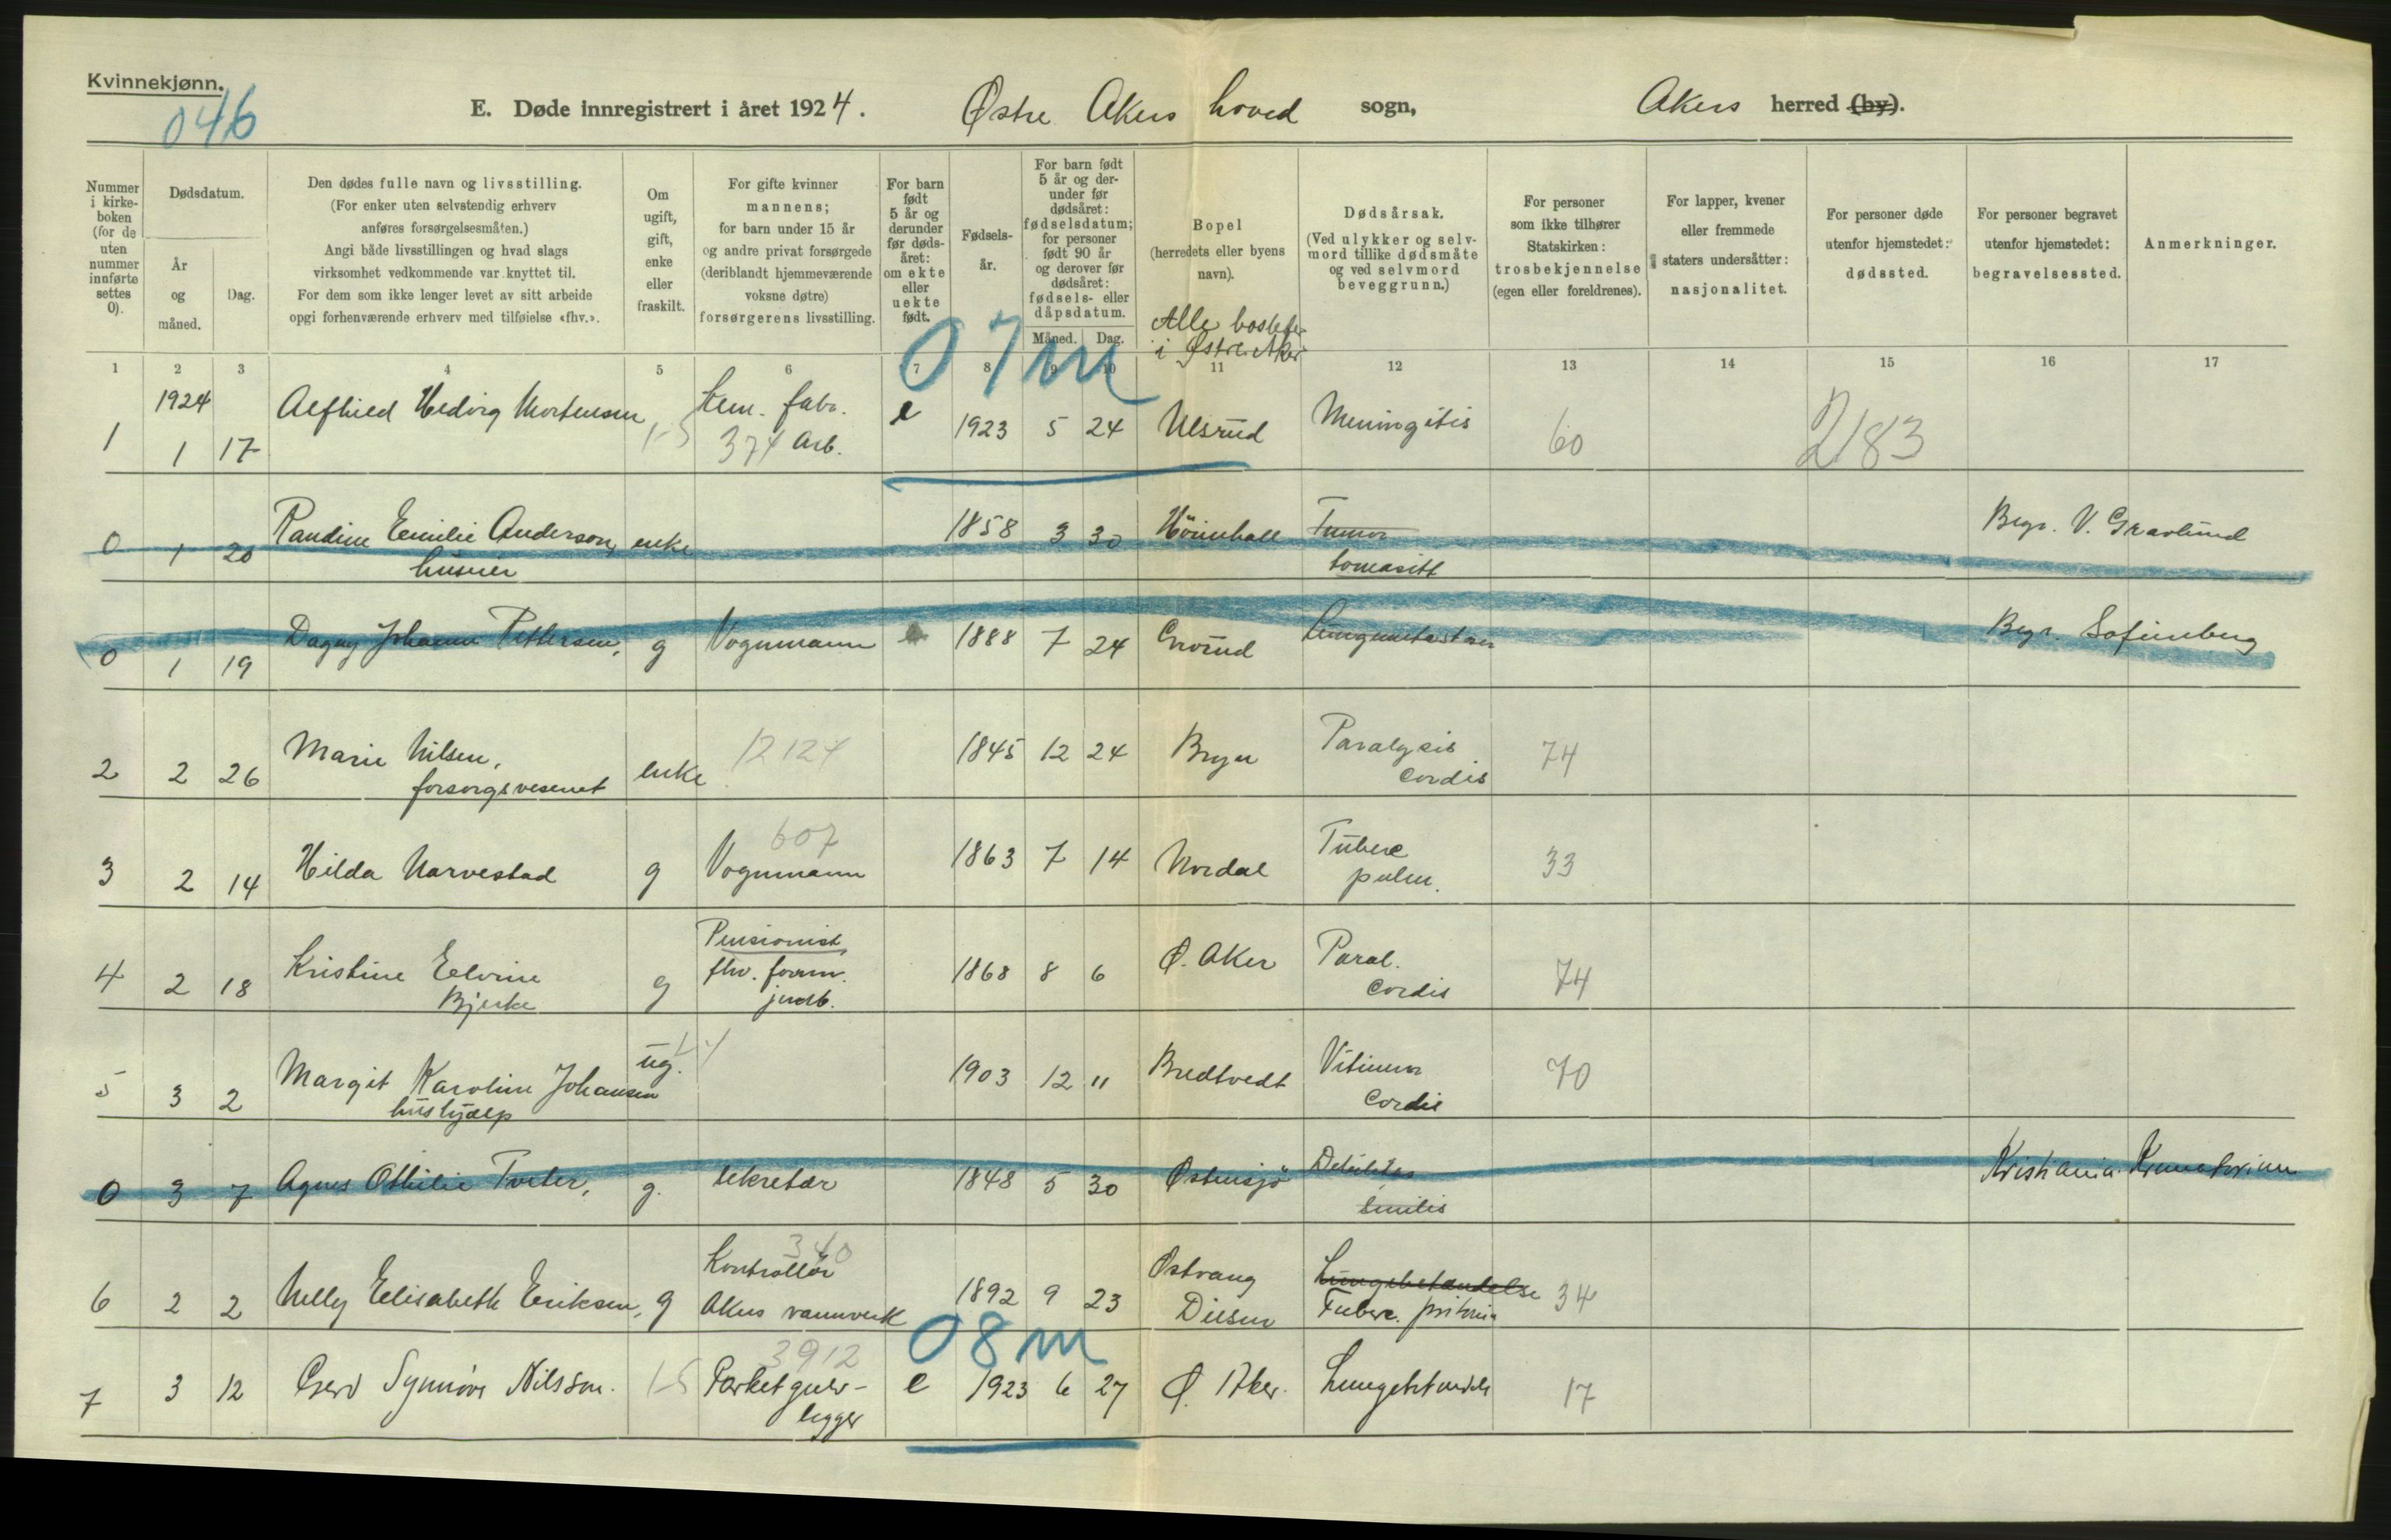 Kvinnekjønn.
046
E. Døde innregistrert i året 1924. Østre Akers hoved sogn, Akers herred (by).
Nummer i kirke-boken (for de uten nummer innførte settes 0).
Dødsdatum.
År og måned.
Dag.
Den dødes fulle navn og livsstilling.
(For enker uten selvstendig erhverv
anføres forsørgelsesmåten.)
Angi både livsstillingen og hvad slags
virksomhet vedkommende var knyttet til.
For dem som ikke lenger levet av sitt arbeide
opgi forhenværende erhverv med tilføielse «fhv.».
Om ugift, gift, enke eller fraskilt.
For gifte kvinner
mannens;
for barn under 15 år
og andre privat forsørgede
(deriblandt hjemmeværende
voksne døtre)
forsørgerens livsstilling.
For barn født 5 år og derunder før døds-året: om ekte eller uekte født.
Fødsels-år.
For barn født 5 år og der-under før dødsåret: fødselsdatum; for personer født 90 år og derover før dødsåret: fødsels- eller dåpsdatum.
Måned. Dag.
Bopel
(herredets eller byens
navn).
Alle bosatte
i Østre Aker
Dødsårsak.
(Ved ulykker og selv-
mord tillike dødsmåte
og ved selvmord
beveggrunn.)
For personer
som ikke tilhører
Statskirken:
trosbekjennelse
(egen eller foreldrenes).
For lapper, kvener
eller fremmede
staters undersåtter:
nasjonalitet.
For personer døde
utenfor hjemstedet:
dødssted.
For personer begravet
utenfor hjemstedet:
begravelsessted.
Anmerkninger.
1 2 3 4 5 6 7 8 9 10 11 12 13 14 15 16 17
07m
1924
1 1 17 Alfhild Hedvig Mortensen 1-5 kem. fabr. 374 Arb. e 1923 5 24 Ulsrud Meningitis 60 2183
0 1 20 Randine Emilie Anderson, enke 1858 3 30 Tumor Begr. V. Gravlund
huseier
0 1 19 Dagny Johanne Pettersen, g Vognmann 1888 7 24 Begr. Sofienberg
2 2 26 Marie Nilsen, enke 12124 1845 12 24 Bryn Paralysis 74
forsorgsvesenet cordis
607
3 2 14 Hilda Narvestad g Vognmann 1863 7 14 Nordal Tuberc 33
pulm.
Pensionist
4 2 18 Kristine Elvine g fhv. form. 1868 8 6 Ø. Aker Paral. 74
Bjerke jernb. cordis
5 3 2 Margit Karoline Johansen ug. 1903 12 11 Bredtvedt Vitium 70
hushjælp Cordis
0 3 7 Agnes Othilie Tveter, g. sekretær 1848 5 30 Østensjö Debilitas Kristiania Krematorium
senilis
340
Kontrollör Østvang Lungebetændelse
6 2 2 Nelly Elisabeth Eriksen, g Akers vannverk 1892 9 23 Disen Tuberc. 34
08m
3912
7 3 12 Gerd Synnöve Nilsson. 1-5 Parketgulv- e 1923 6 27 Ø. Aker. Lungebetændelse 17
legger